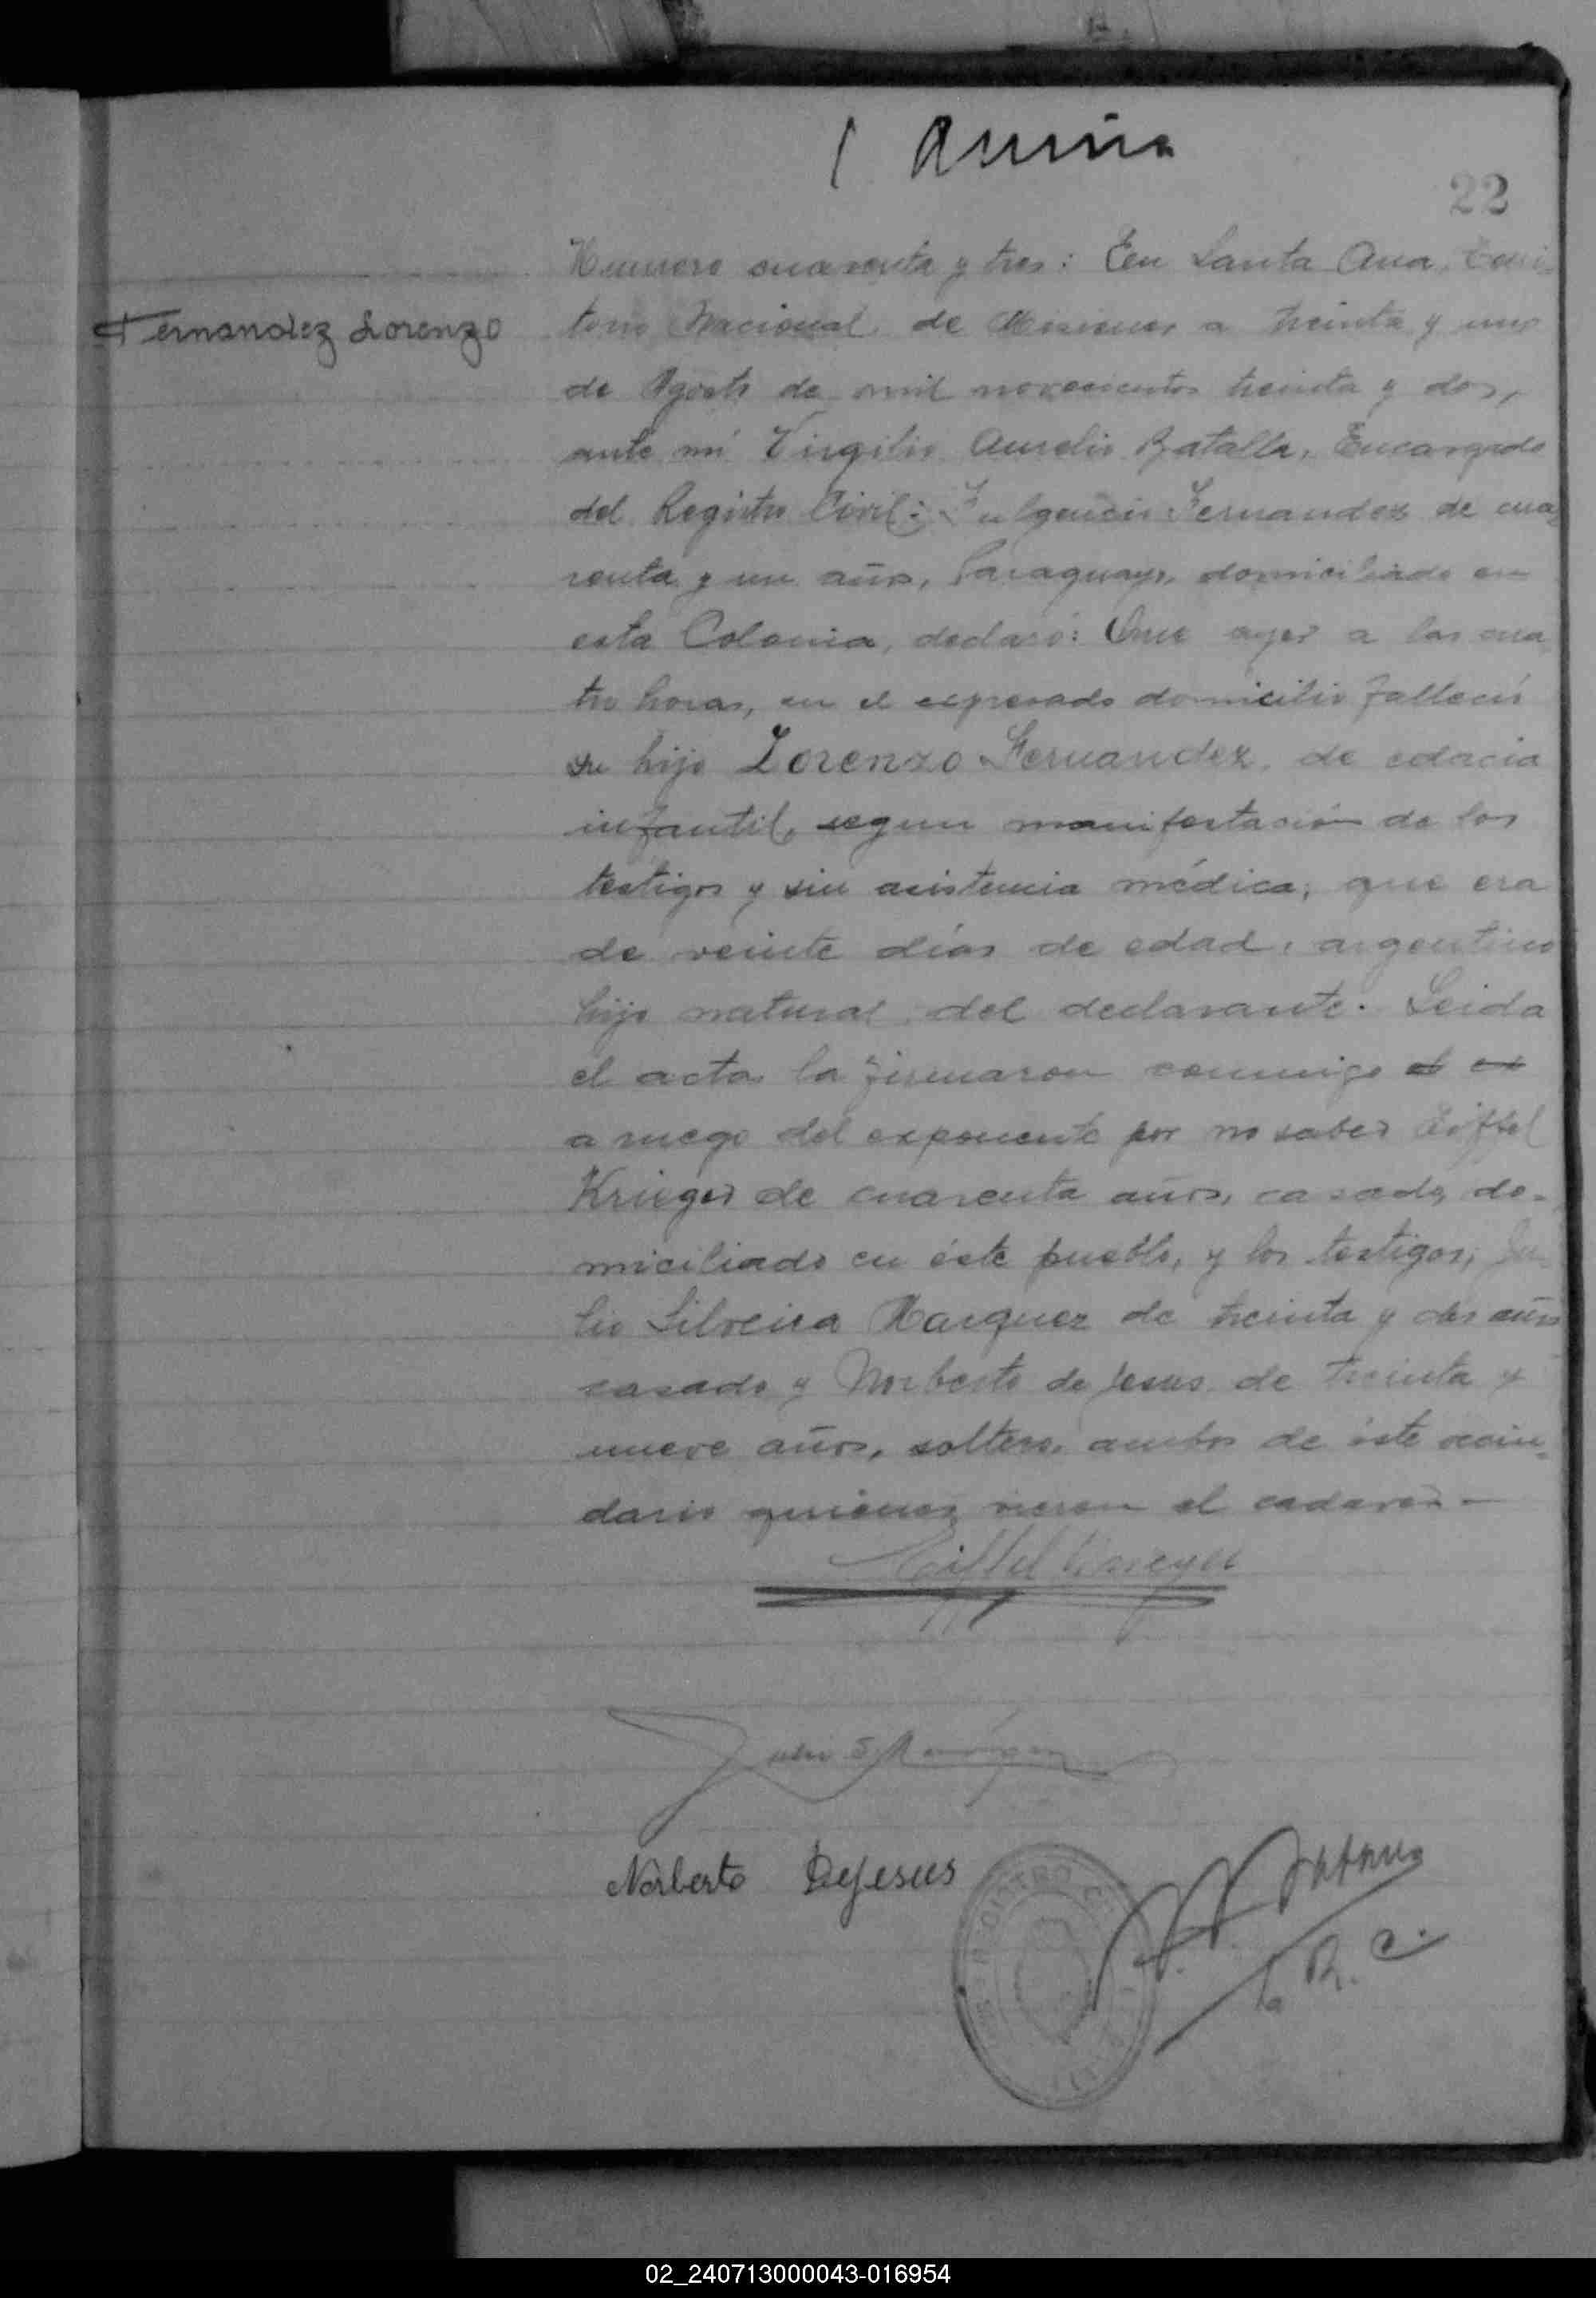 22
Fernandez Lorenzo
Numero cuarenta y tres: En Santa Ana, Terri-
torio Nacional de Misiones a treinta y uno
de Agosto de mil novecientos treinta y dos,
ante mi Virgilio Aurelio Batalla, Encargado
del Registro Civil: Fulgencio Fernandez de cua-
renta y un años, Paraguayo, domiciliado en
esta Colonia, declaró: Que ayer a las cua
tro horas, en el expresado domicilio falleció
su hijo Lorenzo Fernandez, de
infantil, segun manifestación de los
testigos y sin asistencia médica; que era
de veinte días de edad, argentino
hijo natural del declarante. Leida
el acta la firmaron conmigo
a ruego del exponente por no saber Eiffel
Krieger de cuarenta años, casado, do-
miciliado en éste pueblo, y los testigos; Ju-
lio Silveira Marquez de treinta y dos años
casado y Norberto de Jesus de treinta y
nueve años, soltero, ambos de éste vecin-
dario quienes vieron el cadaver.-
Eiffel Krieger
Julio S Marquez
Norberto DeJesus
REGISTRO
R. C.
02_240713000043-016954